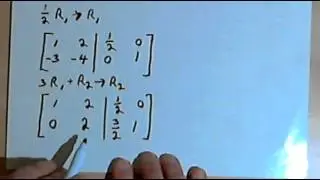 ½ R₁ → R₁
[ 1 2 | ½ 0 ]
[ -3 -4 | 0 1 ]
3R₁ + R₂ → R₂
[ 1 2 | ½ 0 ]
[ 0 2 | 3/2 1 ]